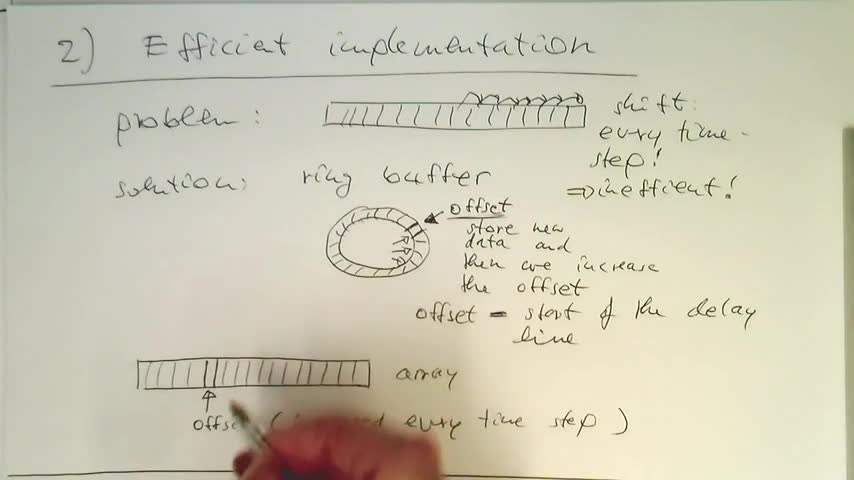 2) Efficient implementation
problem:
shift:
every time-
step!
⇒ inefficient!
solution: ring buffer
offset
store new
data and
then we increase
the offset
offset = start of the delay
line
array
every time step )